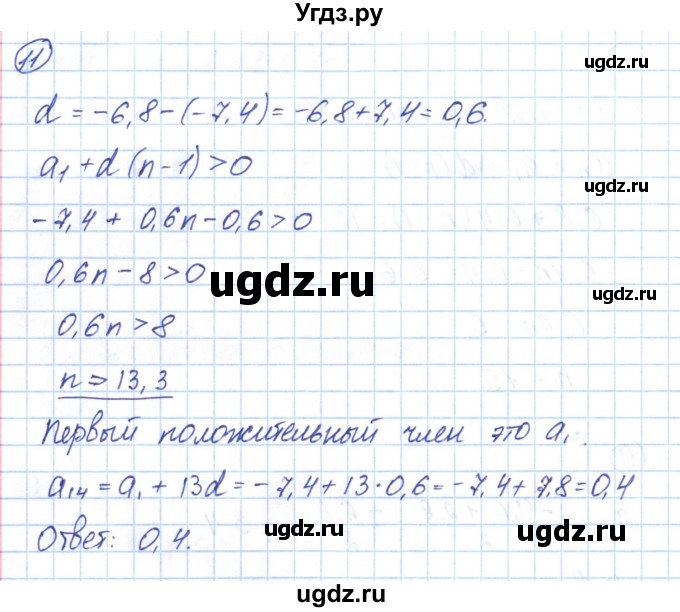 Угдз.ру
11
ugdz.ru
d = -6,8-(-7,4)=-6,8+7,4=0,6.
a₁+d(n-1)>0
ugdz.ru
-7,4+ 0,6n-0,6>0
0,6n-8>0
ugdz.ru
ugdz.ru
0,6n>8
n => 13,3
ugdz.ru
Первый положительный член это a₁.
a₁₄=a₁+13d=-7,4+13·0,6=-7,4+7,8=0,4
ugdz.ru
ugdz.ru
Ответ: 0,4.
ugdz.ru